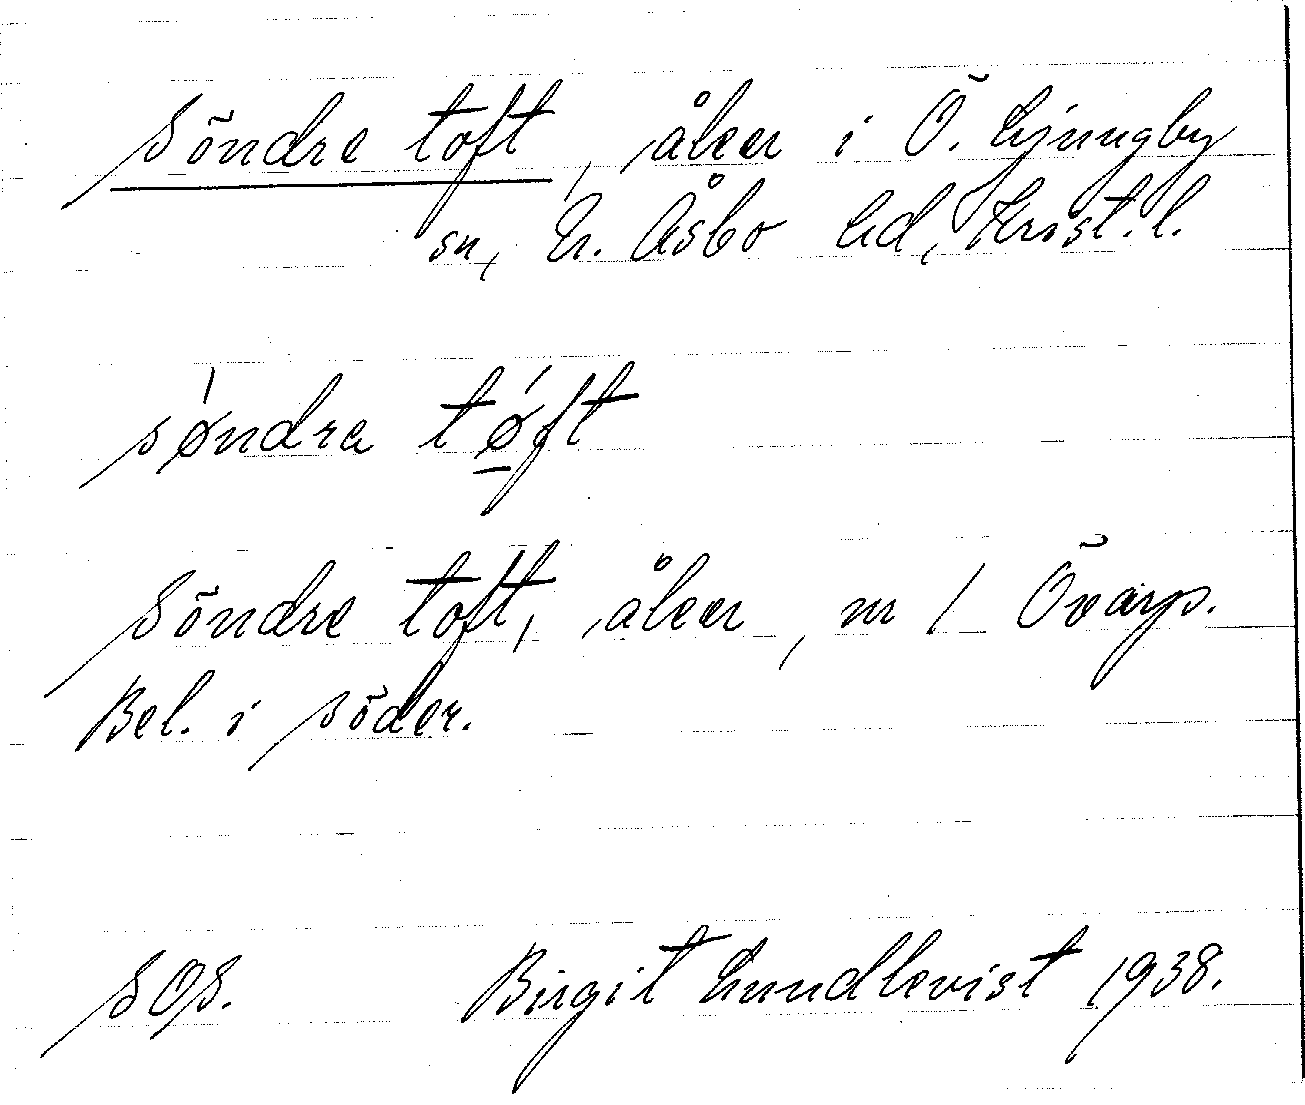 Söndre toft, åker i Ö. Ljungby
sn, N. Åsbo hd, Krist. l.
søndra tø̱ft
Söndre toft, åker, nr 1 Övarp.
Bel. i söder.
SOS. Birgit Lundkvist 1938.